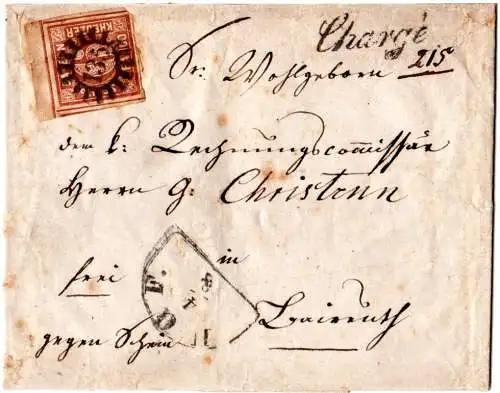 Chargé
Sr: Wohlgeborn 215
dem k: Rechnungscommissär
Herrn G: Christenn
in
frei
Baireuth
gegen Schein